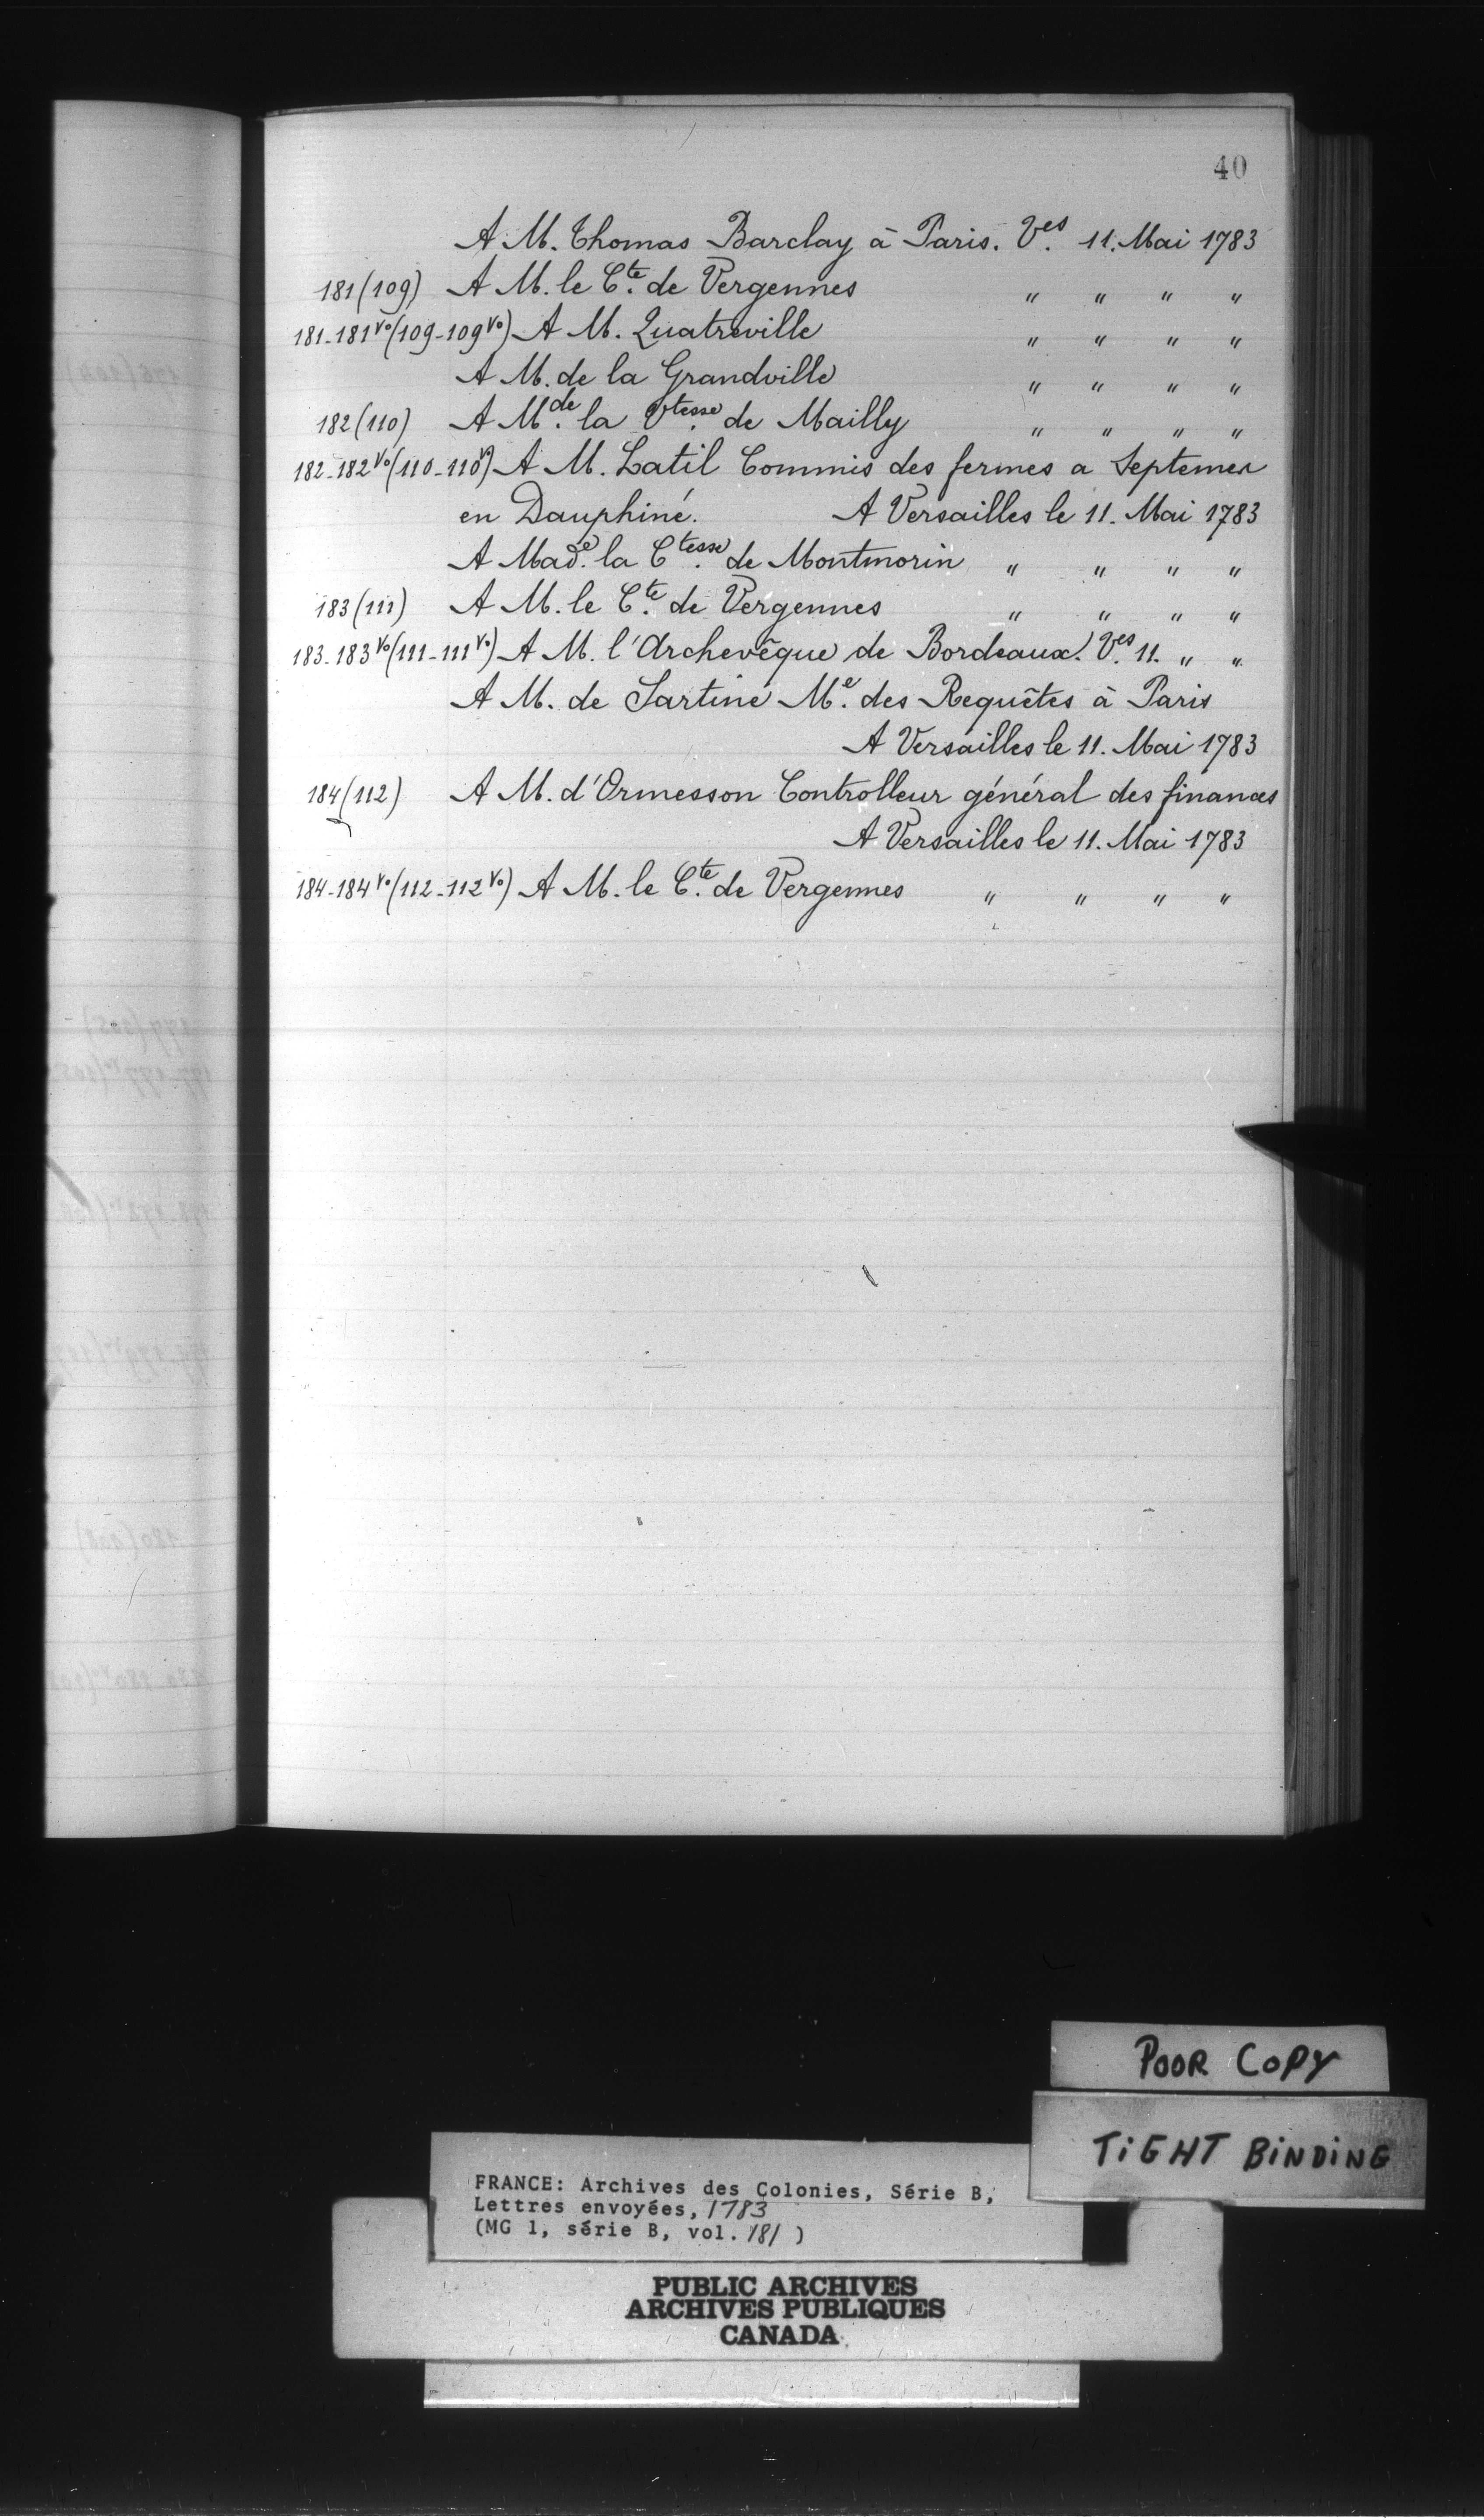 40
A M. Thomas Barclay à Paris. Ves. 11. Mai 1783
181 (109) A M. le Cte. de Vergennes " " " "
181-181vo (109-109vo) A M. Quatreville " " " "
A M. de la Grandville " " " "
182 (110) A Mde. la Vtesse. de Mailly " " " "
182-182vo (110-110vo) A M. Latil Commis des fermes a Septemer
en Dauphiné. A Versailles le 11. Mai 1783
A Made. la Ctesse. de Montmorin " " " "
183 (111) A M. le Cte. de Vergennes " " " "
183-183vo (111-111vo) A M. l'Archevêque de Bordeaux. Ves. 11. " "
A M. de Sartine Me. des Requêtes à Paris
A Versailles le 11. Mai 1783
184 (112) A M. d'Ormesson Controlleur général des finances
A Versailles le 11. Mai 1783
184-184vo (112-112vo) A M. le Cte. de Vergennes " " " "
POOR COPY
TiGHT BiNDiNG
FRANCE: Archives des Colonies, Série B,
Lettres envoyées, 1783
(MG 1, série B, vol. 181 )
PUBLIC ARCHIVES
ARCHIVES PUBLIQUES
CANADA